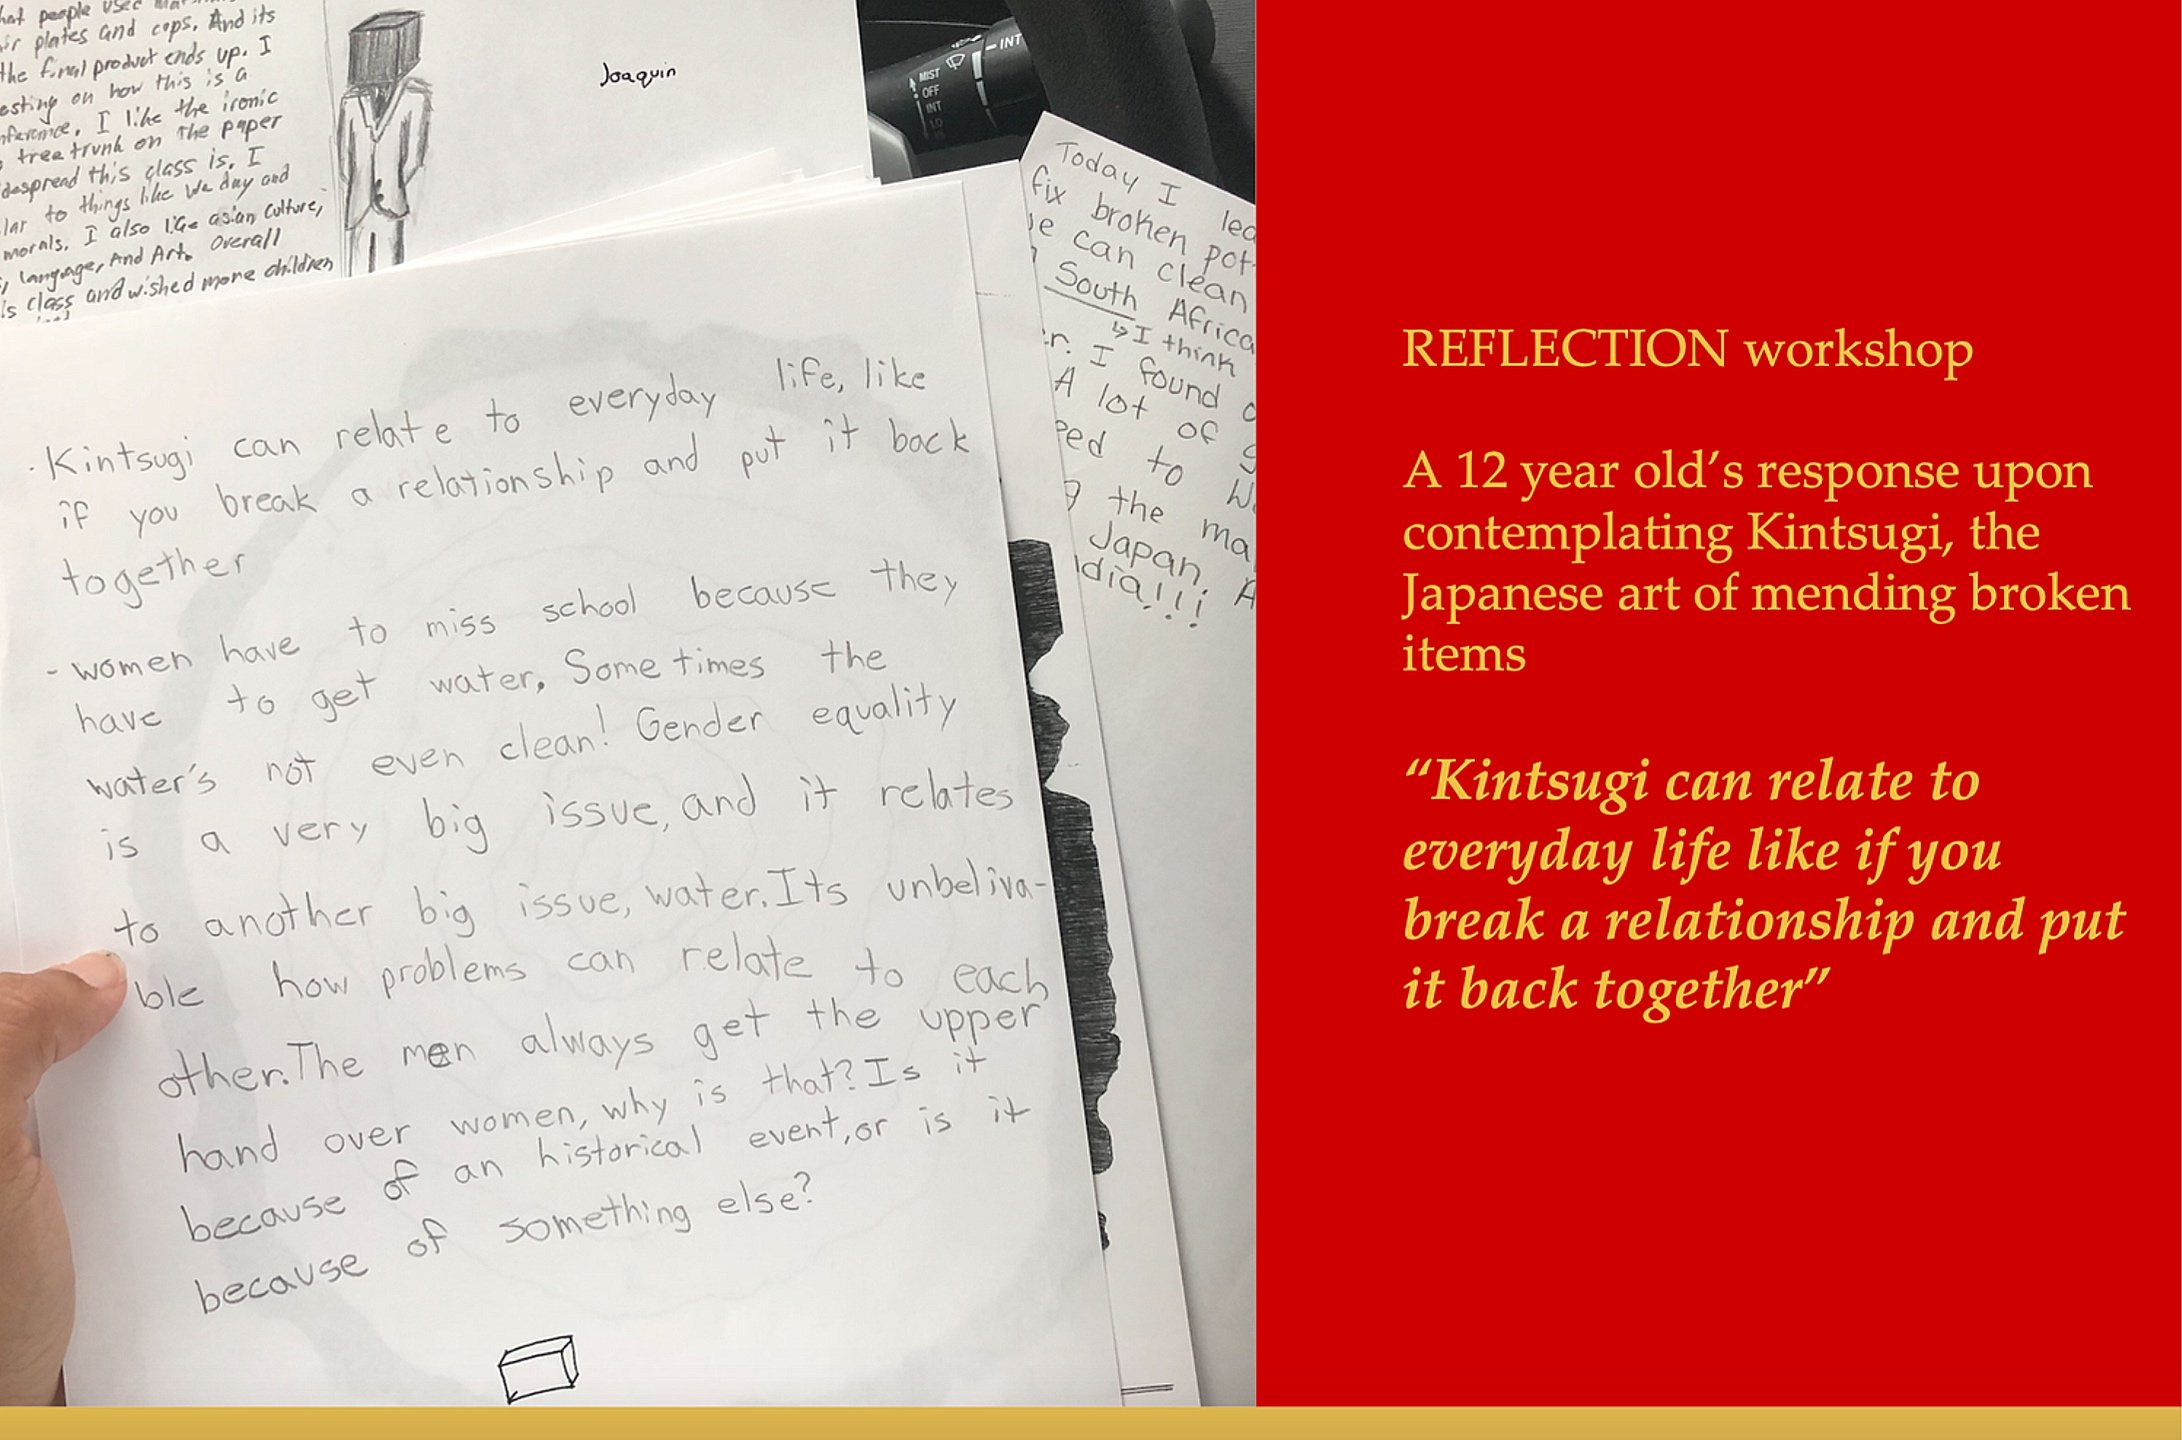 hat people used
ir plates and cups. And its
the final product ends up. I
esting on how this is a
nference. I like the ironic
tree trunk on the paper
despread this class is. I
lar to things like We day and
morals. I also like asian culture,
, language, And Art. Overall
is class and wished more children
Joaquin
MIST
OFF
INT
LO
INT
Today I lea
fix broken pot
e can clean
South Africa
↳ I think
r. I found
A lot of
ed to
g the ma
Japan. A
dia!!!
· Kintsugi can relate to everyday life, like
if you break a relationship and put it back
together
- women have to miss school because they
have to get water. Some times the
water's not even clean! Gender equality
is a very big issue, and it relates
to another big issue, water. Its unbeliva-
ble how problems can relate to each
other. The men always get the upper
hand over women, why is that? Is it
because of an historical event, or is it
because of something else?
REFLECTION workshop
A 12 year old's response upon
contemplating Kintsugi, the
Japanese art of mending broken
items
“Kintsugi can relate to
everyday life like if you
break a relationship and put
it back together”